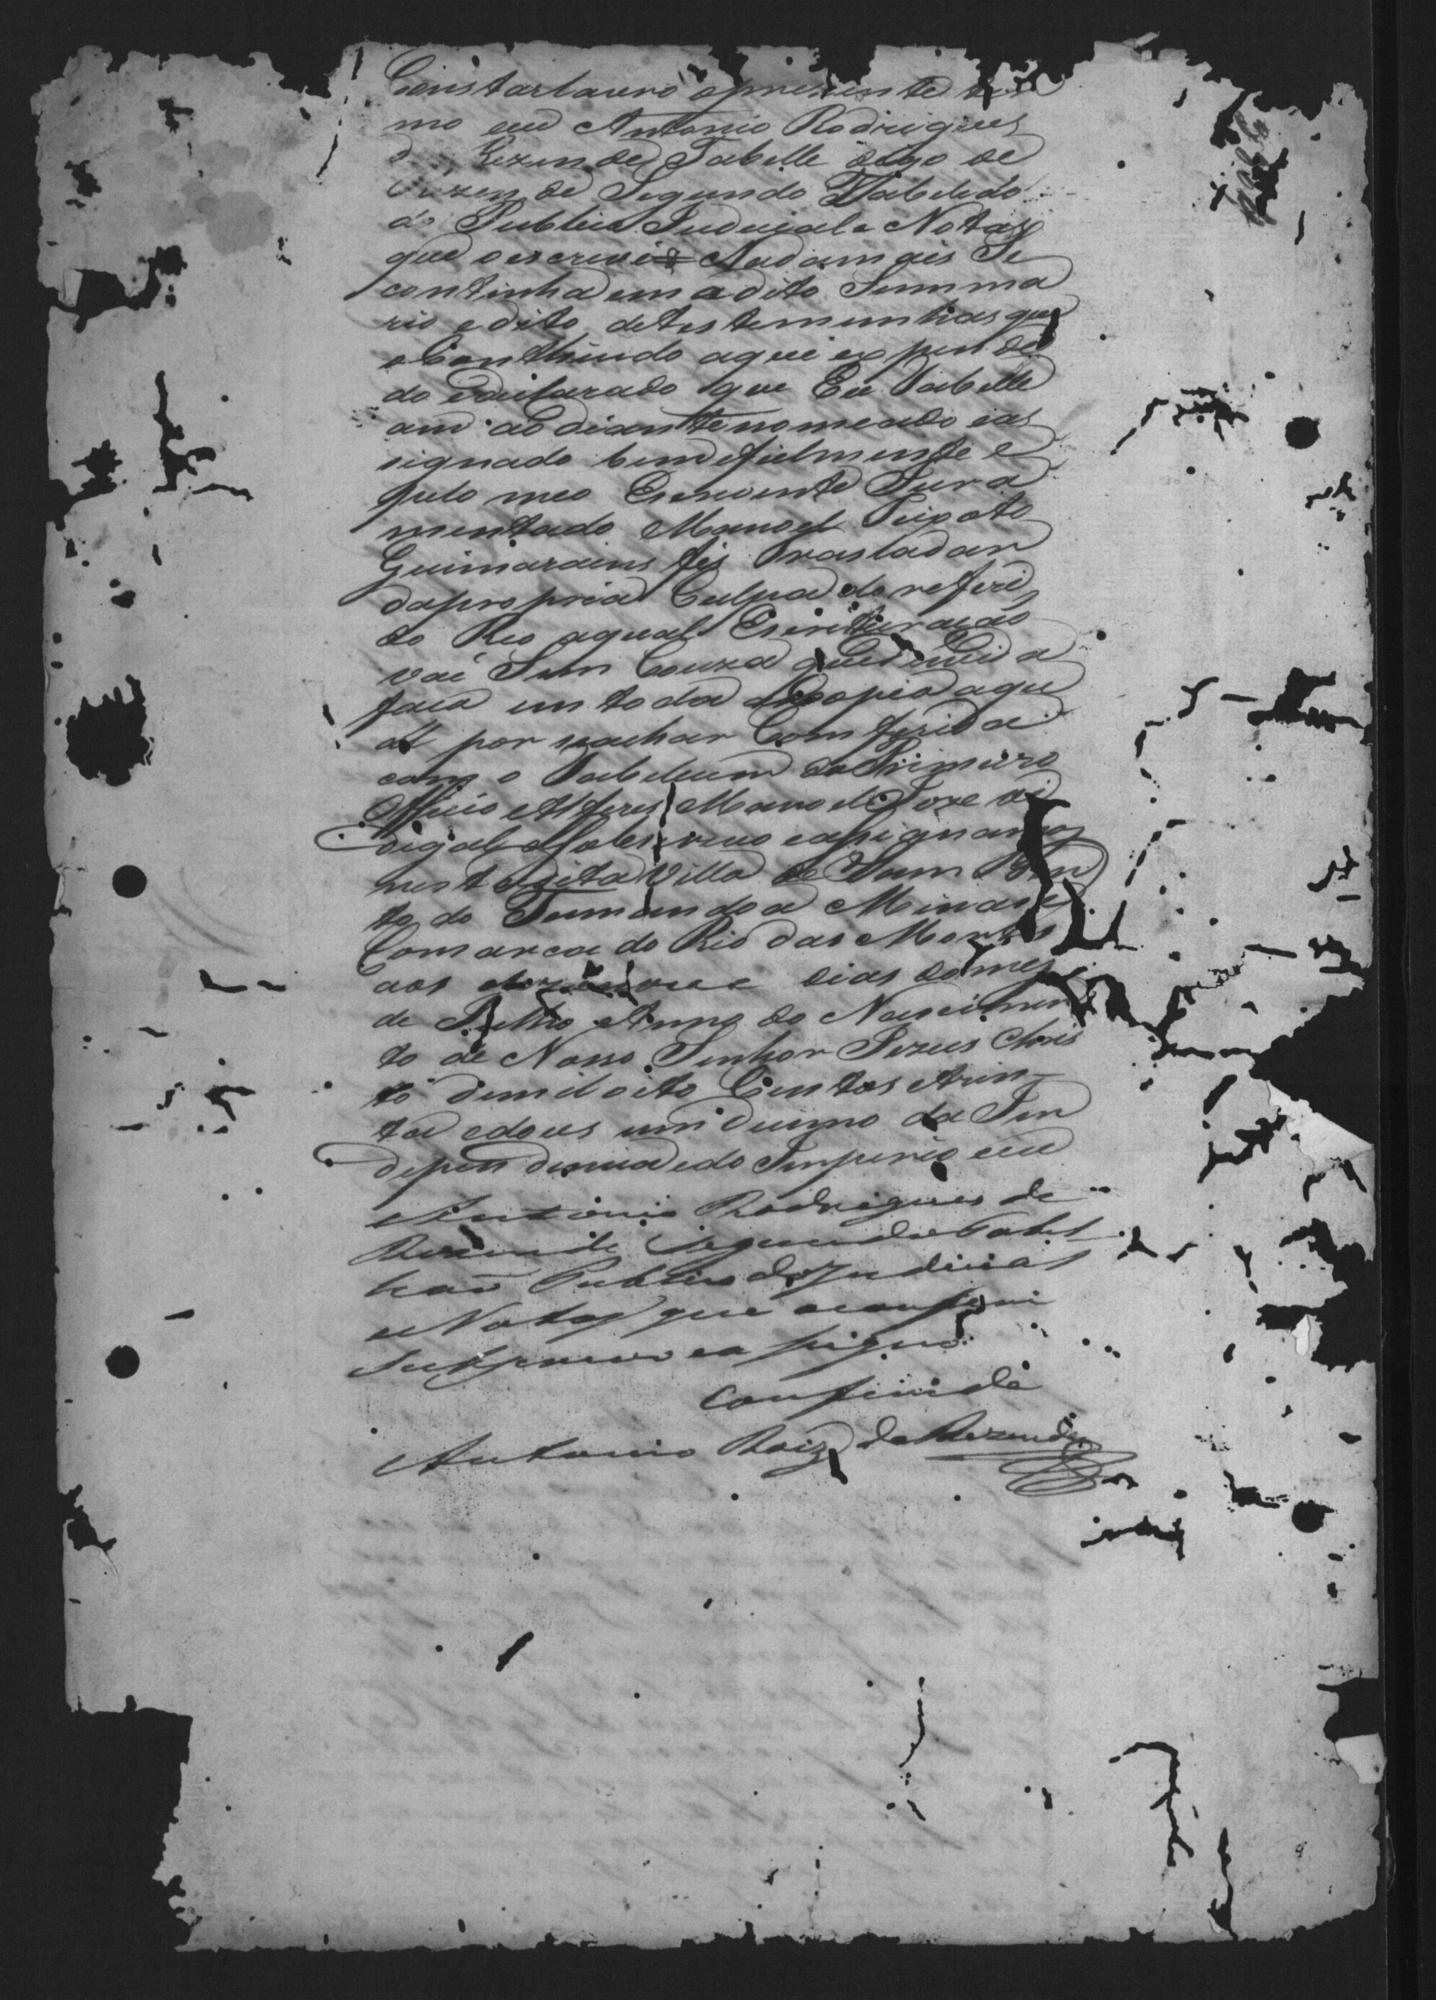 Constar lavro opresente ter
mo eu Antonio Rodrigues
d Rezende Tabelle digo de
Rezende Segundo Tabeledo
do Publico Judicial e Notas
que oescrevi e Nadamais Se
continha em odito Summa
rio edito detestemunhas que
o Conthiudo aqui expende
do edeclarado que Eu Tabelle
am ao diante nomeado eas
signado bem efielmente e
pelo meo Escrevente Jura
mentado Manoel Peixoto
Guimarains fis Trasladar
dapropria Culpa do referi
do Reo aqual Escrituração
vai Sem Couza que duvida
faca em toda acopia aqu
al por eachar Comferida
com o Tabeleam do Primeiro
Officio Alferes Manoel Joze
eassignamos
nesta dita Villa de Sam Ben
to do Tamandoa Minas e
Comarca do Rio das Mortes
aos dias domez
de Anno do Nascimen
to de Nosso Senhor Jezus Chris
to demil oito Centos etrin
ta edous undecimo da In
dependencia edo Imperio eeu
Antonio Rodrigues de
Rezende Segundo Tabel
liaõ Publico do Judicial
e Notas que aconferi
Subscrevi ea signo
Conferida
Antonio Roiz de Rezende